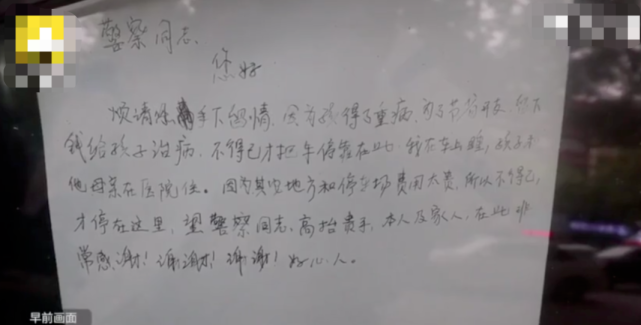 警察同志
您好
烦请您手下留情，因为孩得了重病，为了节约开支，留下
钱给孩子治病，不得已才把车停靠在此，我在车上睡，孩子和
他母亲在医院住。因为其它地方和停车场费用太贵，所以不得已，
才停在这里，望警察同志，高抬贵手，本人及家人，在此非
常感谢！谢谢！谢谢！好心人。
早前画面